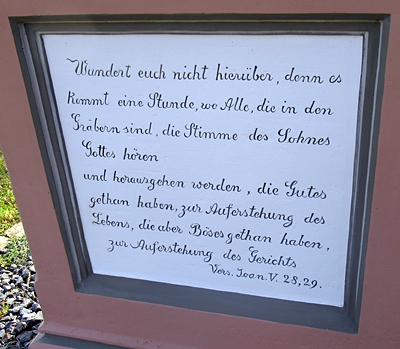 Wundert euch nicht hierüber, denn es
kommt eine Stunde, wo Alle, die in den
Gräbern sind, die Stimme des Sohnes
Gottes hören
und herausgehen werden, die Gutes
gethan haben, zur Auferstehung des
Lebens, die aber Böses gethan haben,
zur Auferstehung des Gerichts
Vers. Joan. V. 28,29.